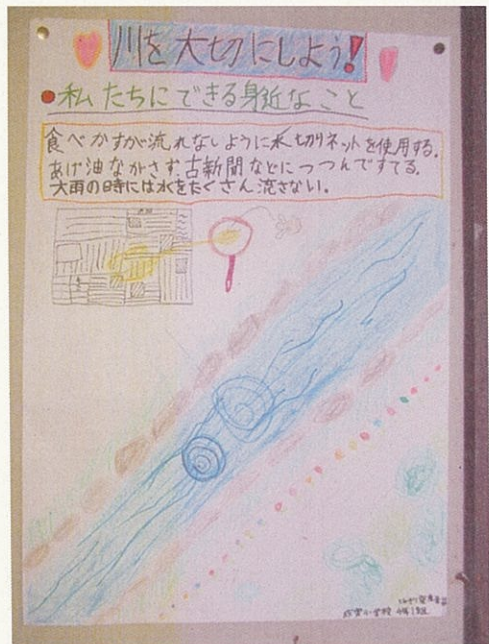 川を大切にしよう!
●私たちにできる身近なこと
食べかすが流れないように水切りネットを使用する。
あげ油ながさず、古新聞などにつつんですてる。
大雨の時には水をたくさん流さない。
小学校 4年1組